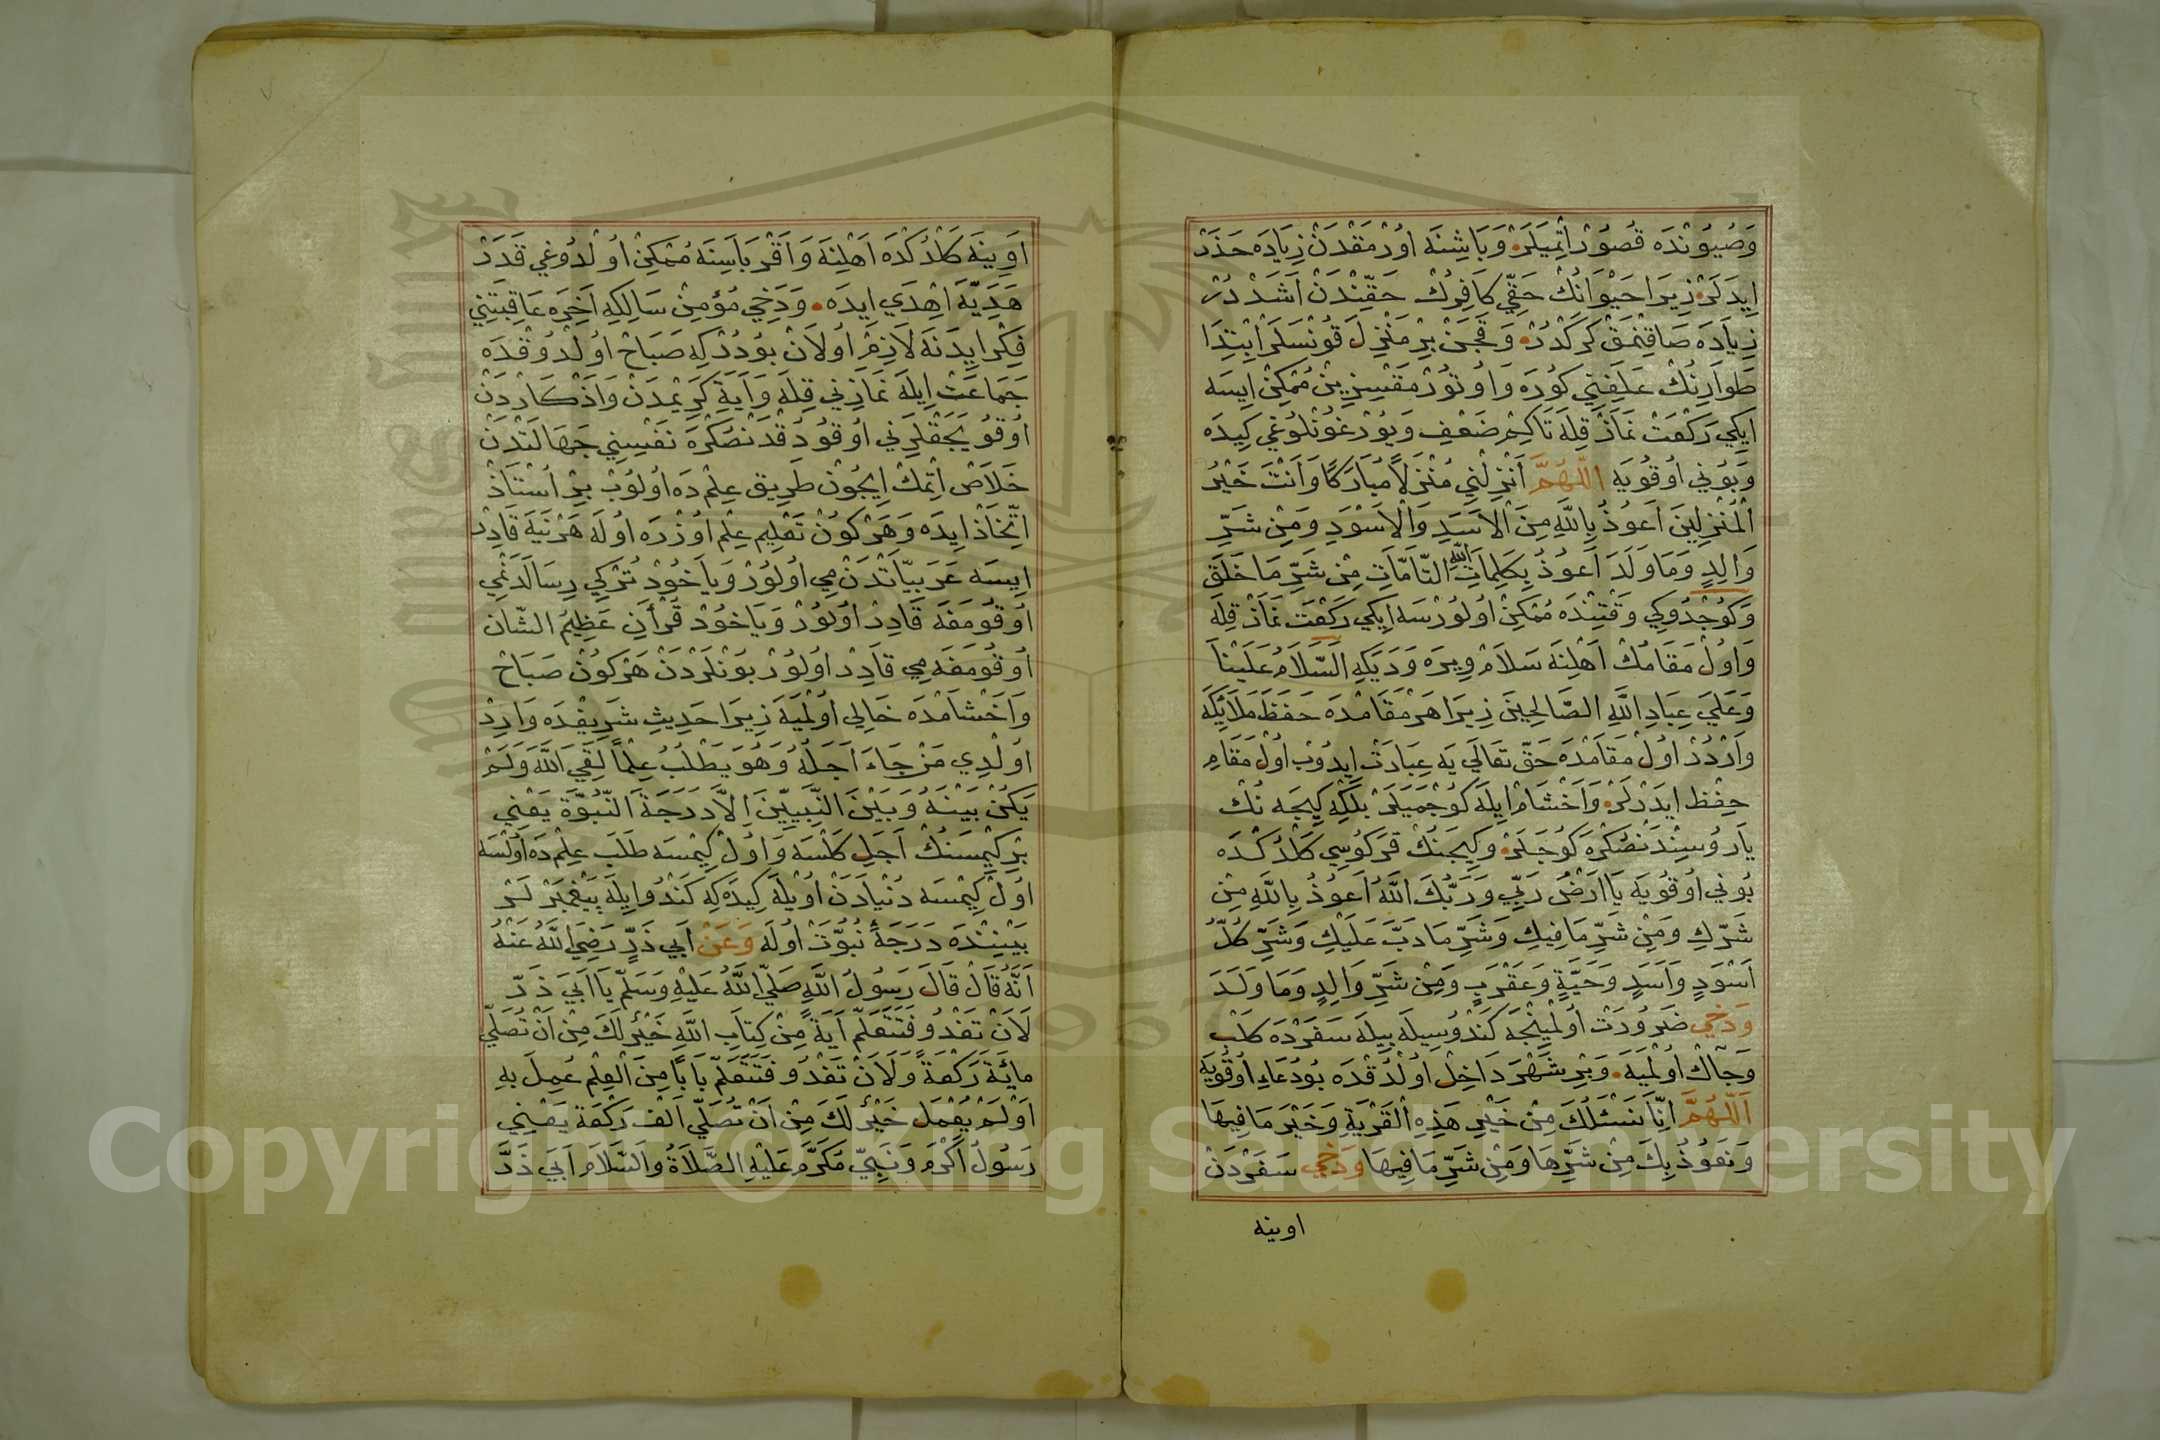 وَصُيُونْدَه قُصُورْ اَتِميَلَرْ وَبَاشِنَه اوُرْمَقْدَنْ زِيَادَه حَذَرْ
اِيدَلَرْ زِيرَا حَيْوَانُكْ حَقِّي كَافِرُكْ حَقِّنْدَنْ اَشَدْ دُرْ
زِيَادَه صَاقِنْمَقْ كَرَكْدُرْ وَقَچَنْ بِرْ مَنْزِلَ قُونْسَلَرْ اِبْتِدَا
طَوَارِنُكْ عَلَفِنِي كُورَه وَاُوتُورْمَقْسِزِينْ مُمْكِنْ اِيسَه
اِيكِي رَكْعَتْ نَمَازْ قِلَه تَاكِمْ ضَعْفِ وَيُورْغُونْلُوغِي كِيدَه
وَبُونِي اُوقُويَه اَللّٰهُمَّ اَنْزِلْنِي مُنْزَلًا مُبَارَكًا وَاَنْتَ خَيْرُ
الْمُنْزِلِينَ اَعُوذُ بِاللّٰهِ مِنَ الْاَسَدِ وَالْاَسْوَدِ وَمِنْ شَرِّ
وَالِدٍ وَمَا وَلَدَ اَعُوذُ بِكَلِمَاتِ اللّٰهِ التَّامَّاتِ مِنْ شَرِّ مَا خَلَقَ
وَكُوچْدُوكِي وَقْتِنْدَه مُمْكِنْ اُولُورْسَه اِيكِي رَكْعَتْ نَمَازْ قِلَه
وَاُولْ مَقَامُكْ اَهْلِنَه سَلَامْ وِيرَه وَدَيَكِه اَلسَّلَامُ عَلَيْنَا
وَعَلَي عِبَادِ اللّٰهِ الصَّالِحِينَ زِيرَا هَرْ مَقَامْدَه حَفَظَه مَلَائِكَه
وَارْدُرْ اُولْ مَقَامْدَه حَقّ تَعَالَي يَه عِبَادَتْ اِيدُوبْ اُولْ مَقَامِ
حِفْظ اِيدَرْلَرْ وَاَخْشَامْ اِيلَه كُوچْمَيَلَرْ بَلْكِه كِيجَه نُكْ
يَارُوسِنْدَنْصُكْرَه كُوچَلَرْ وَكِيجَنُكْ قَرَكُوسِي كَلْدُكْدَه
بُونِي اُوقُويَه يَا اَرْضُ رَبِّي وَرَبُّكَ اللّٰهُ اَعُوذُ بِاللّٰهِ مِنْ
شَرِّكِ وَمِنْ شَرِّ مَا فِيكِ وَشَرِّ مَا دَبَّ عَلَيْكِ وَشَرِّ كُلِّ
اَسْوَدٍ وَاَسَدٍ وَحَيَّةٍ وَعَقْرَبٍ وَمِنْ شَرِّ وَالِدٍ وَمَا وَلَدَ
وَدَخِي ضَرُورَتْ اُولْمَيِنْجَه كَنْدُوسِيلَه بِيلَه سَفَرْدَه كَلْبْ
وَچَاكْ اُولْمَيَه وَبِرْ شَهْرَ دَاخِلْ اُولْدُقْدَه بُو دُعَاءِ اُوقُويَه
اَللّٰهُمَّ اِنَّا نَسْئَلُكَ مِنْ خَيْرِ هَذِهِ الْقَرْيَةِ وَخَيْرَ مَا فِيهَا
وَنَعُوذُ بِكَ مِنْ شَرِّهَا وَمِنْ شَرِّ مَا فِيهَا وَدَخِي سَفَرْدَنْ
اوينه
اَوِينَه كَلْدُكْدَه اَهْلِنَه وَاَقْرَبَاسِنَه مُمْكِنْ اُولْدُوغِي قَدَرْ
هَدِيَّه اِهْدَي اِيدَه وَدَخِي مُؤْمِنْ سَالِكِه اَخِرَه عَاقِبَتِنِي
فِكْر اِيدَنَه لَازِمْ اُولَانْ بُودُرْكِه صَبَاحْ اُولْدُوقْدَه
جَمَاعَتْ اِيلَه نَمَازِنِي قِلَه وَاٰيَةِ كَرِيمْدَنْ وَاَذْكَارْدَنْ
اُوقُويَجَقْلَرِنِي اُوقُودُقْدَنْصُكْرَه نَفْسِنِي جَهَالَتْدَنْ
خَلَاصْ اِتْمَكْ اِيچُونْ طَرِيقِ عِلْمْ دَه اُولُوبْ بِرْ اُسْتَاذْ
اِتِّخَاذْ اِيدَه وَهَرْكُونْ تَعْلِيمِ عِلْمْ اُوزْرَه اُولَه هَرْنَيَه قَادِرْ
اِيسَه عَرَبِيَّاتْدَنْ مِي اُولُورْ وَيَاخُودْ تُرْكِي رِسَالَه دَنْمِي
اُوقُومَغَه قَادِرْ اُولُورْ وَيَاخُودْ قُرْاَنِ عَظِيمُ الشَّانْ
اُوقُومَغَه مِي قَادِرْ اُولُورْ بُونْلَرْدَنْ هَرْكُونْ صَبَاحْ
وَاَخْشَامْدَه خَالِي اُولْمَيَه زِيرَا حَدِيثِ شَرِيفْدَه وَارِدْ
اُولْدِي مَنْ جَاءَ اَجَلُهُ وَهُوَ يَطْلُبُ عِلْمًا لَقِيَ اللّٰهَ وَلَمْ
يَكُنْ بَيْنَهُ وَبَيْنَ النَّبِيِّينَ اِلَّا دَرَجَةَ النُّبُوَّةِ يَعْنِي
بِرْ كِيمْسَنُكْ اَجَلِ كَلْسَه وَاُولْ كِيمْسَه طَلَبِ عِلْمْ دَه اُولْسَه
اُولْ كِيمْسَه دُنْيَادَنْ اُويْلَه كِيدَه كِه كَنْدُو اِيلَه پَيْغَمْبَرْ لَرْ
بَيْنِنْدَه دَرَجَۀ نُبُوَّتْ اُولَه وَعَنْ اَبِي ذَرٍّ رَضِيَ اللّٰهُ عَنْهُ
اَنَّهُ قَالَ قَالَ رَسُولُ اللّٰهِ صَلَّي اللّٰهُ عَلَيْهِ وَسَلَّمَ يَا اَبَي ذَرّ
لَاَنْ تَغْدُو فَتَتَعَلَّمَ اٰيَةً مِنْ كِتَابِ اللّٰهِ خَيْرٌ لَكَ مِنْ اَنْ تُصَلِّي
مِائَةَ رَكْعَةٍ وَلَاَنْ تَغْدُو فَتَتَعَلَّمَ بَابًا مِنَ الْعِلْمِ عُمِلَ بِهِ
اَوْلَمْ يُعْمَلْ خَيْرٌ لَكَ مِنْ اَنْ تُصَلِّي اَلْفَ رَكْعَةٍ يَعْنِي
رَسُولُ اَكْرَم وَنَبِيّ مُكَرَّم عَلَيْهِ الصَّلَاةُ وَالسَّلَام اَبَي ذَرّ
Copyright © King Saud University